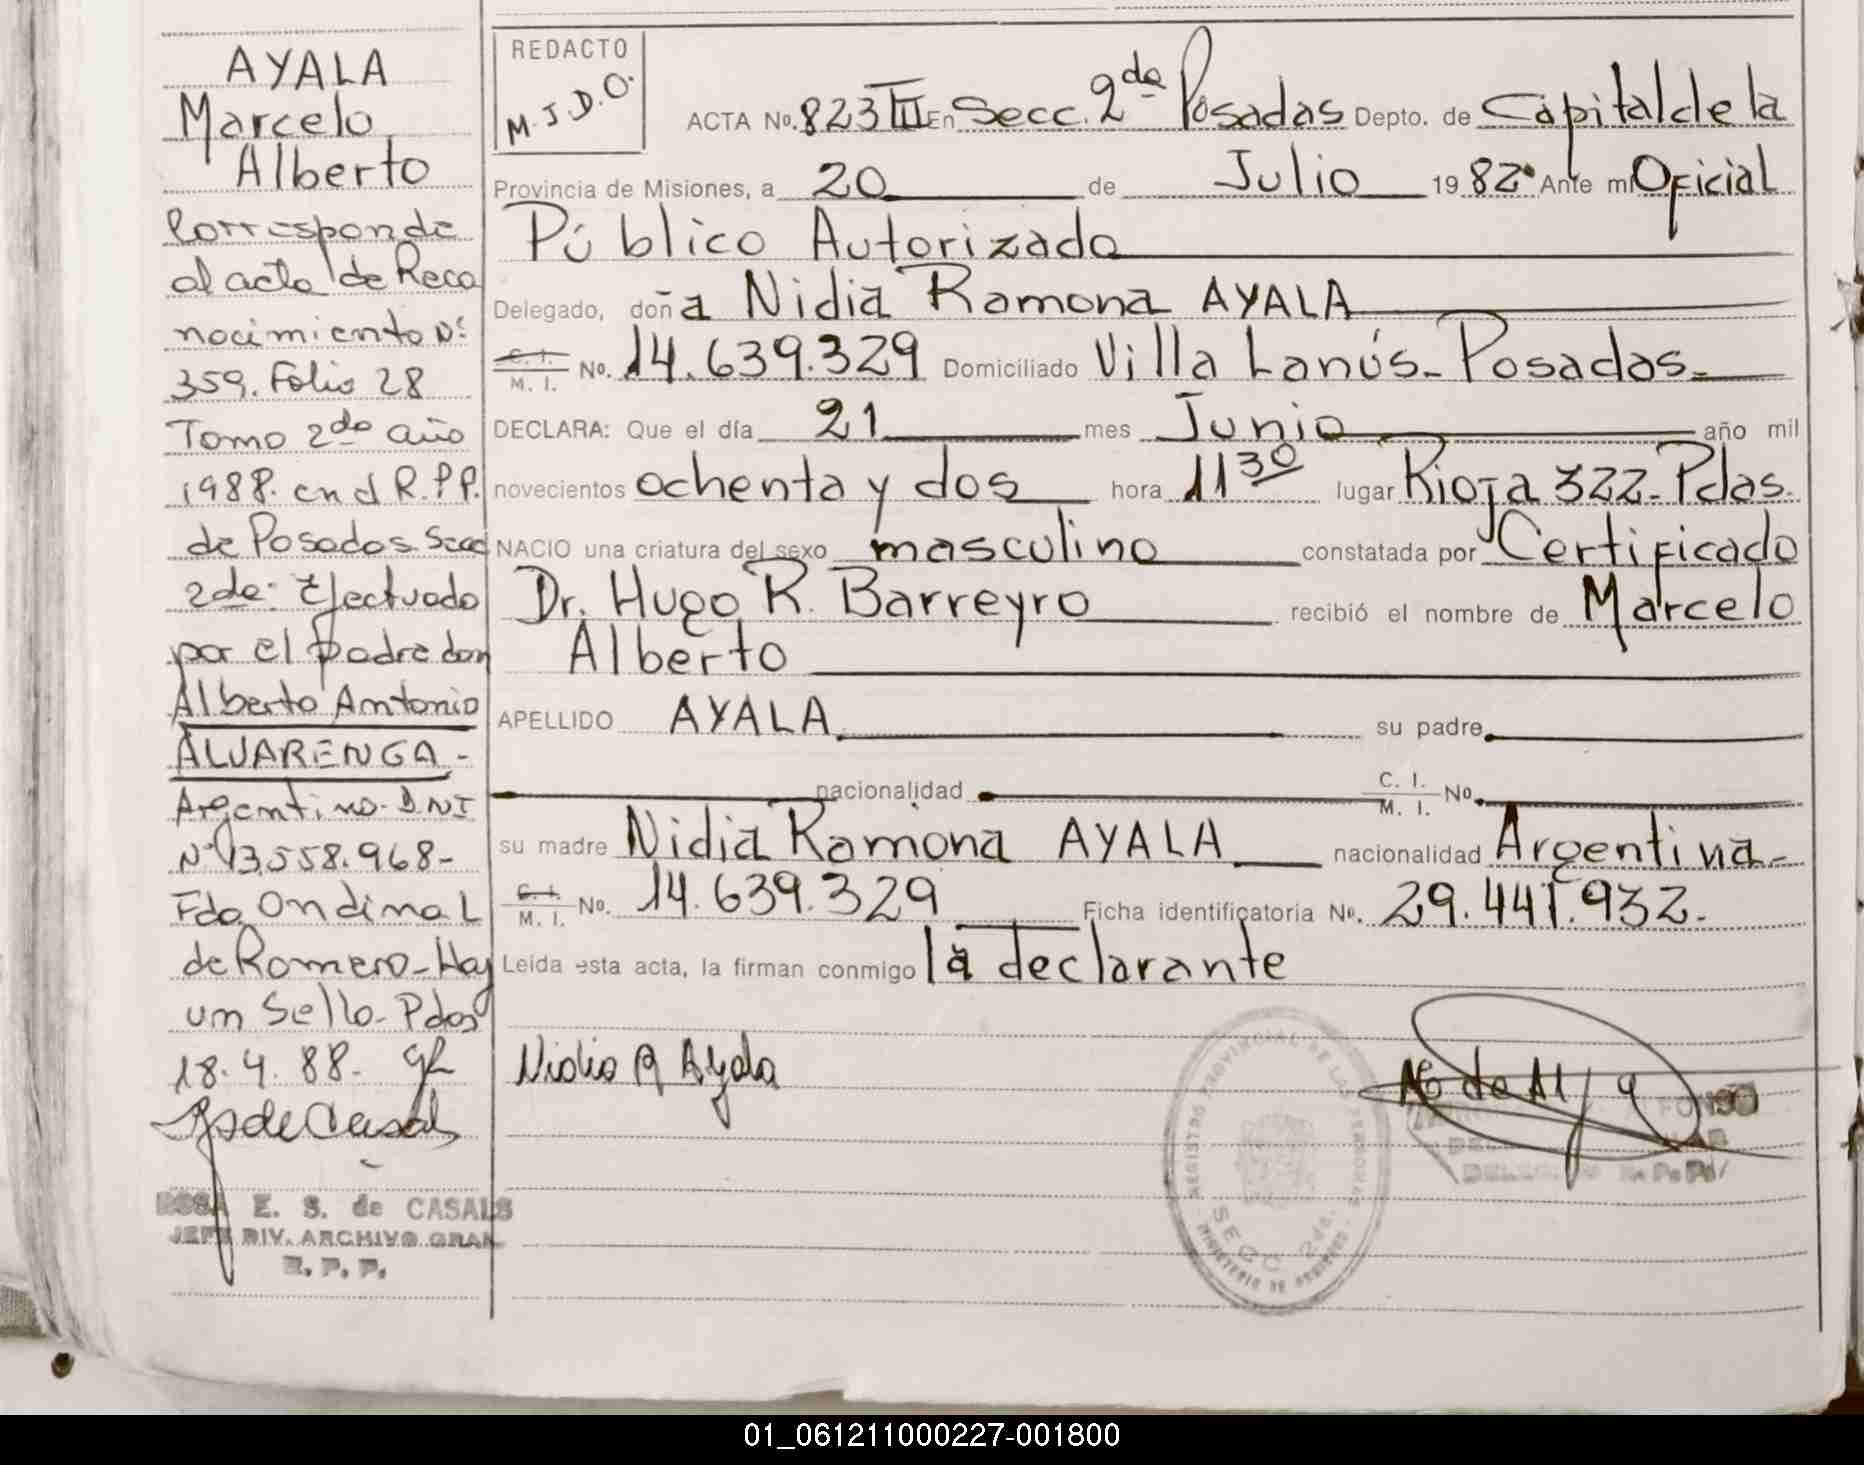 AYALA
Marcelo
Alberto
Corresponde
al acta de Reco
nocimiento Nº
359. Folio 28
Tomo 2do año
1988. en el R.P.P.
de Posadas Secc
2da: Efectuado
por el padre don
Alberto Antonio
ALVARENGA -
Argentino - D.N.I
Nº 13,558.968-
Fdo Ondina L
de Romero - Hay
un Sello - Pdas
18.4.88.
ROSA E. S. de CASALS
JEFE DIV. ARCHIVO GRAL
R. P. P.
REDACTO
M.J.D.O.
ACTA No. 823 III En Secc. 2da Posadas Depto. de Capital de la
Provincia de Misiones, a 20 de Julio 1982 Ante mi Oficial
Público Autorizado
Delegado, doña Nidia Ramona AYALA
C. I. M. I. No. 14.639.329 Domiciliado Villa Lanús - Posadas -
DECLARA: Que el día 21 mes Junio año mil
novecientos ochenta y dos hora 11 30 lugar Rioja 322 - Pdas.
NACIO una criatura del sexo masculino constatada por Certificado
Dr. Hugo R. Barreyro recibió el nombre de Marcelo
Alberto
APELLIDO AYALA su padre
nacionalidad C. I. M. I. No.
su madre Nidia Ramona AYALA nacionalidad Argentina -
C. I. M. I. No. 14.639.329 Ficha identificatoria No. 29.441.932.
Leída esta acta, la firman conmigo la declarante
Nidia R Ayala
REGISTRO PROVINCIAL DE LAS PERSONAS
SECC 2da.
MINISTERIO DE GOBIERNO
01_061211000227-001800